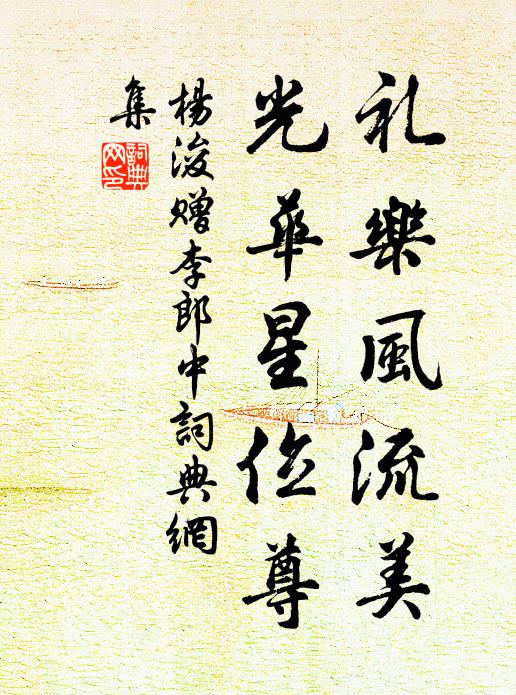 礼樂風流美
光華星位尊
楊浚贈李郎中詞典網
集
詞典
网印